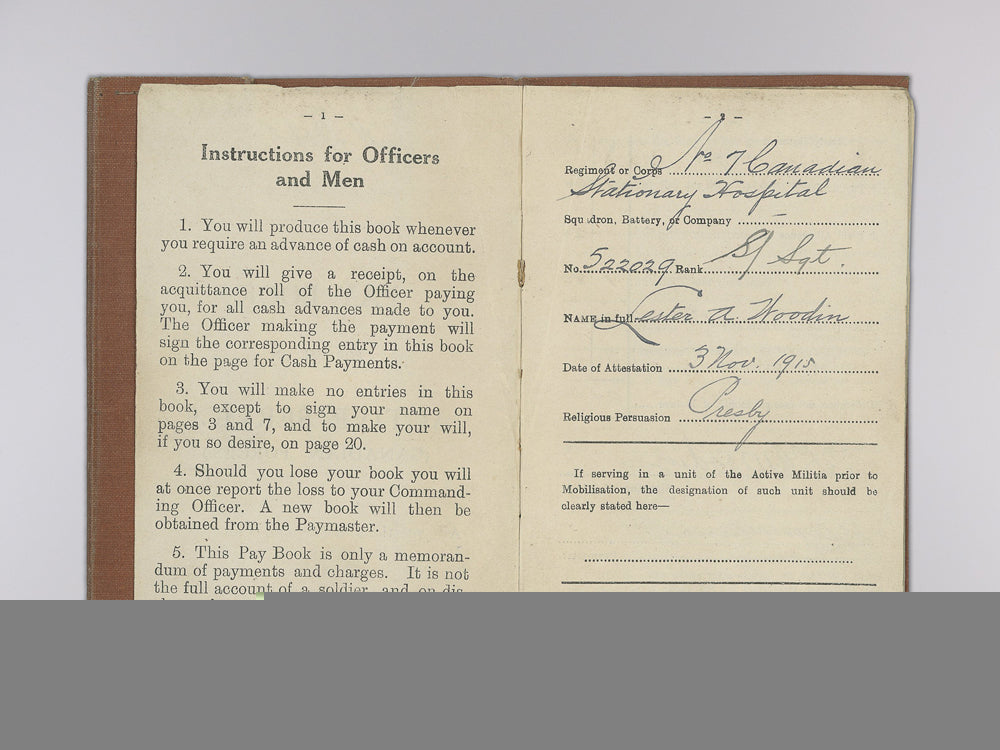 – 1 –
Instructions for Officers
and Men
1. You will produce this book whenever
you require an advance of cash on account.
2. You will give a receipt, on the
acquittance roll of the Officer paying
you, for all cash advances made to you.
The Officer making the payment will
sign the corresponding entry in this book
on the page for Cash Payments.
3. You will make no entries in this
book, except to sign your name on
pages 3 and 7, and to make your will,
if you so desire, on page 20.
4. Should you lose your book you will
at once report the loss to your Command-
ing Officer. A new book will then be
obtained from the Paymaster.
5. This Pay Book is only a memoran-
dum of payments and charges. It is not
the full account of a soldier, and on dis-
– 2 –
Regiment or Corps No 7 Canadian
Stationary Hospital
Squadron, Battery, or Company –
No. 522029 Rank S/ Sgt.
NAME in full Lester A Woodin
Date of Attestation 3 Nov. 1915
Religious Persuasion Presby
If serving in a unit of the Active Militia prior to
Mobilisation, the designation of such unit should be
clearly stated here—